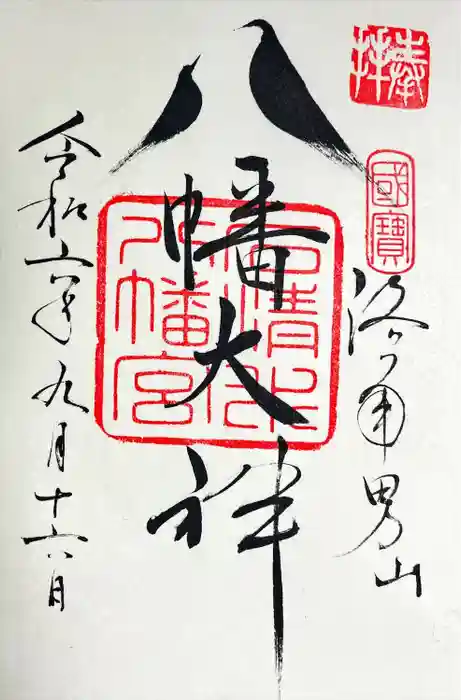 奉拝
國寶
洛南男山
八幡大神
石清水
八幡宮
令和六年九月十六日